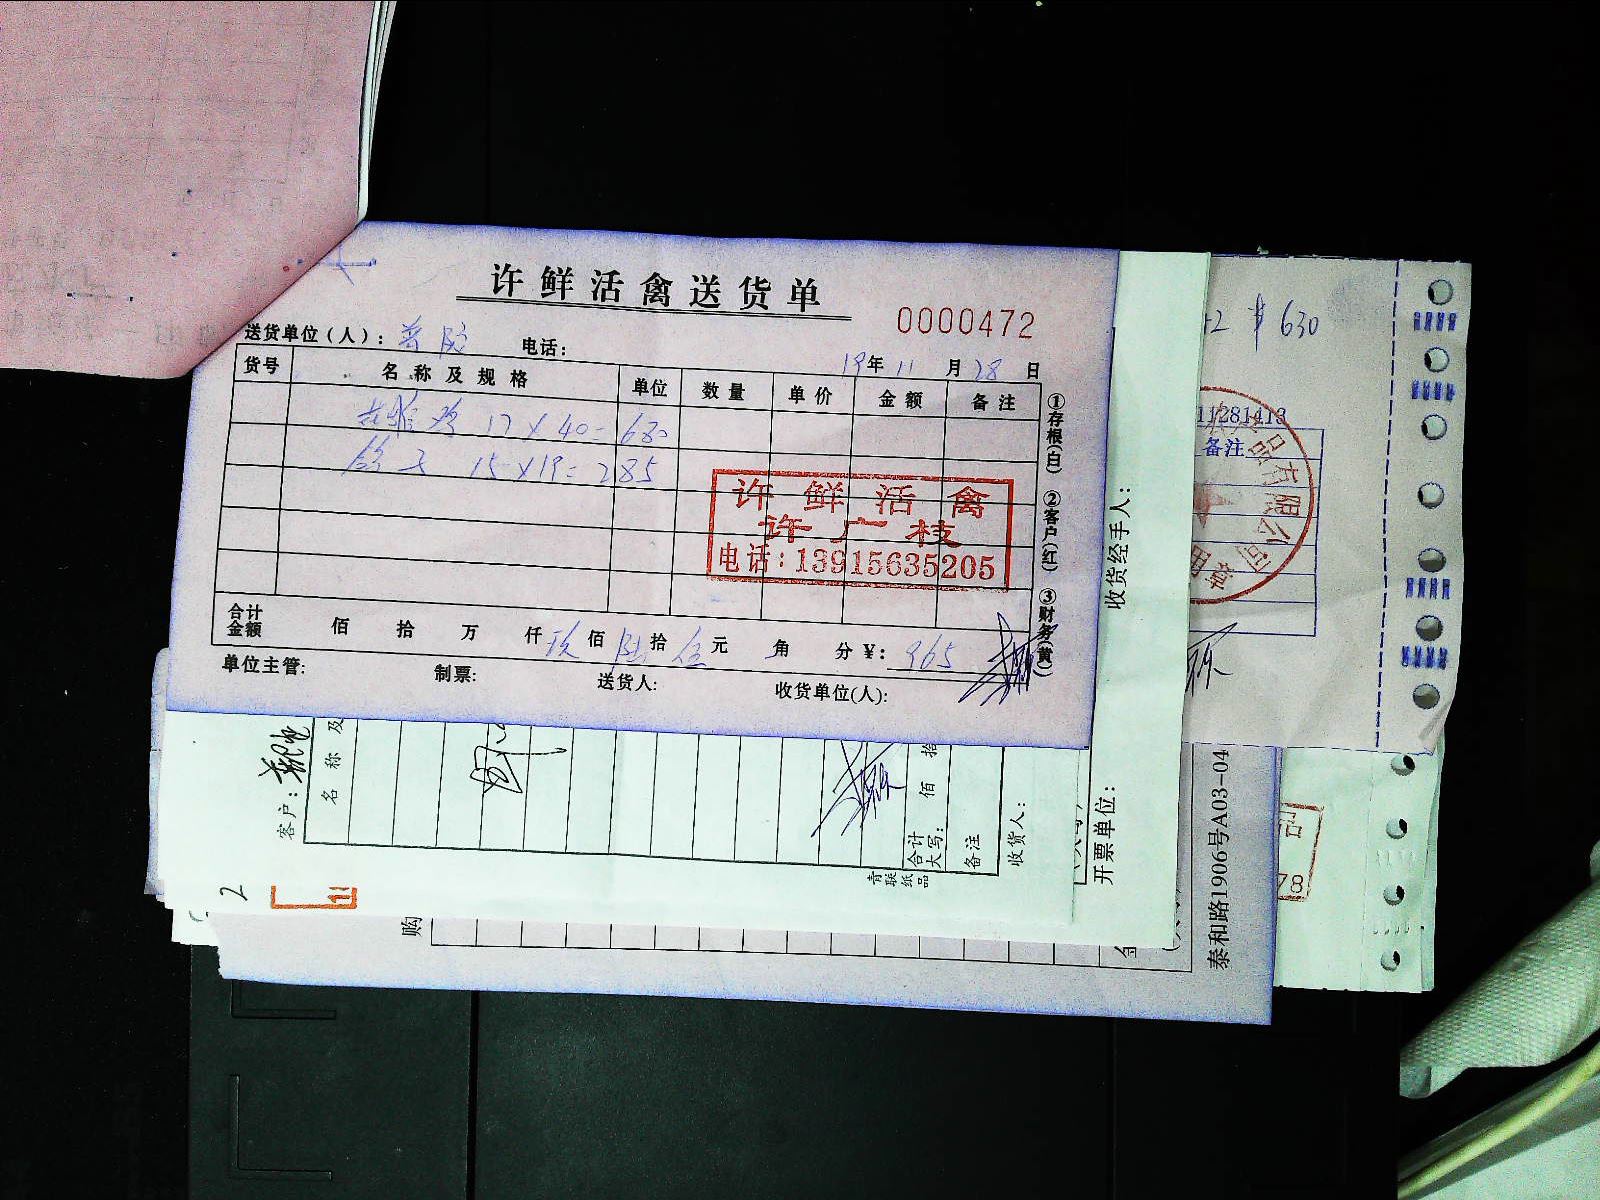 许鲜活禽送货单
0000472
送货单位(人): 电话:
19年11月28日
货号 名称及规格 单位 数量 单价 金额 备注
17×40=680
鸽子 15×19=285
许鲜活禽
许广枝
电话:13915635205
合计金额 佰 拾 万 仟玖佰陆拾伍元 角 分 ¥: 965
单位主管: 制票: 送货人: 收货单位(人):
①存根(白) ②客户(红) ③财务(黄)
收货经手人:
开票单位:
¥630
11281413
备注
品有限公司
客户:
名称及
合计大写: 佰 拾
备注
收货人:
青联纸品
2
购
泰和路1906号A03-04
78